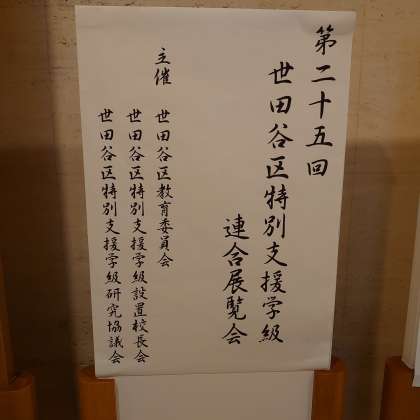 第二十五回
世田谷区特別支援学級
連合展覧会
主催
世田谷区教育委員会
世田谷区特別支援学級設置校長会
世田谷区特別支援学級研究協議会